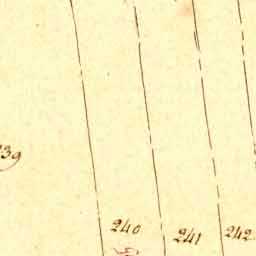 239
240
241
242